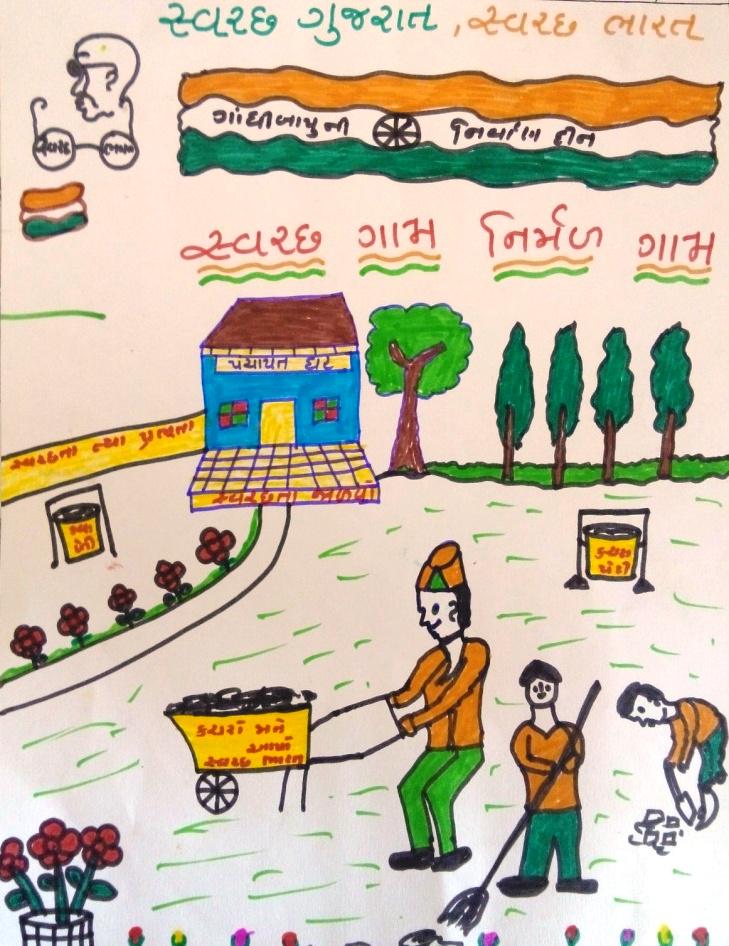 સ્વચ્છ ગુજરાત, સ્વચ્છ ભારત
ગાંધીબાપુની નિર્વાણ દીન
સ્વચ્છ ભારત
સ્વચ્છ ગામ નિર્મળ ગામ
પંચાયત ઘર
સ્વચ્છતા ત્યા પ્રભુતા
સ્વચ્છતા જાળવો
કચરા પેટી
કચરા પેટી
કચરો મને
આપો
સ્વચ્છ ભારત